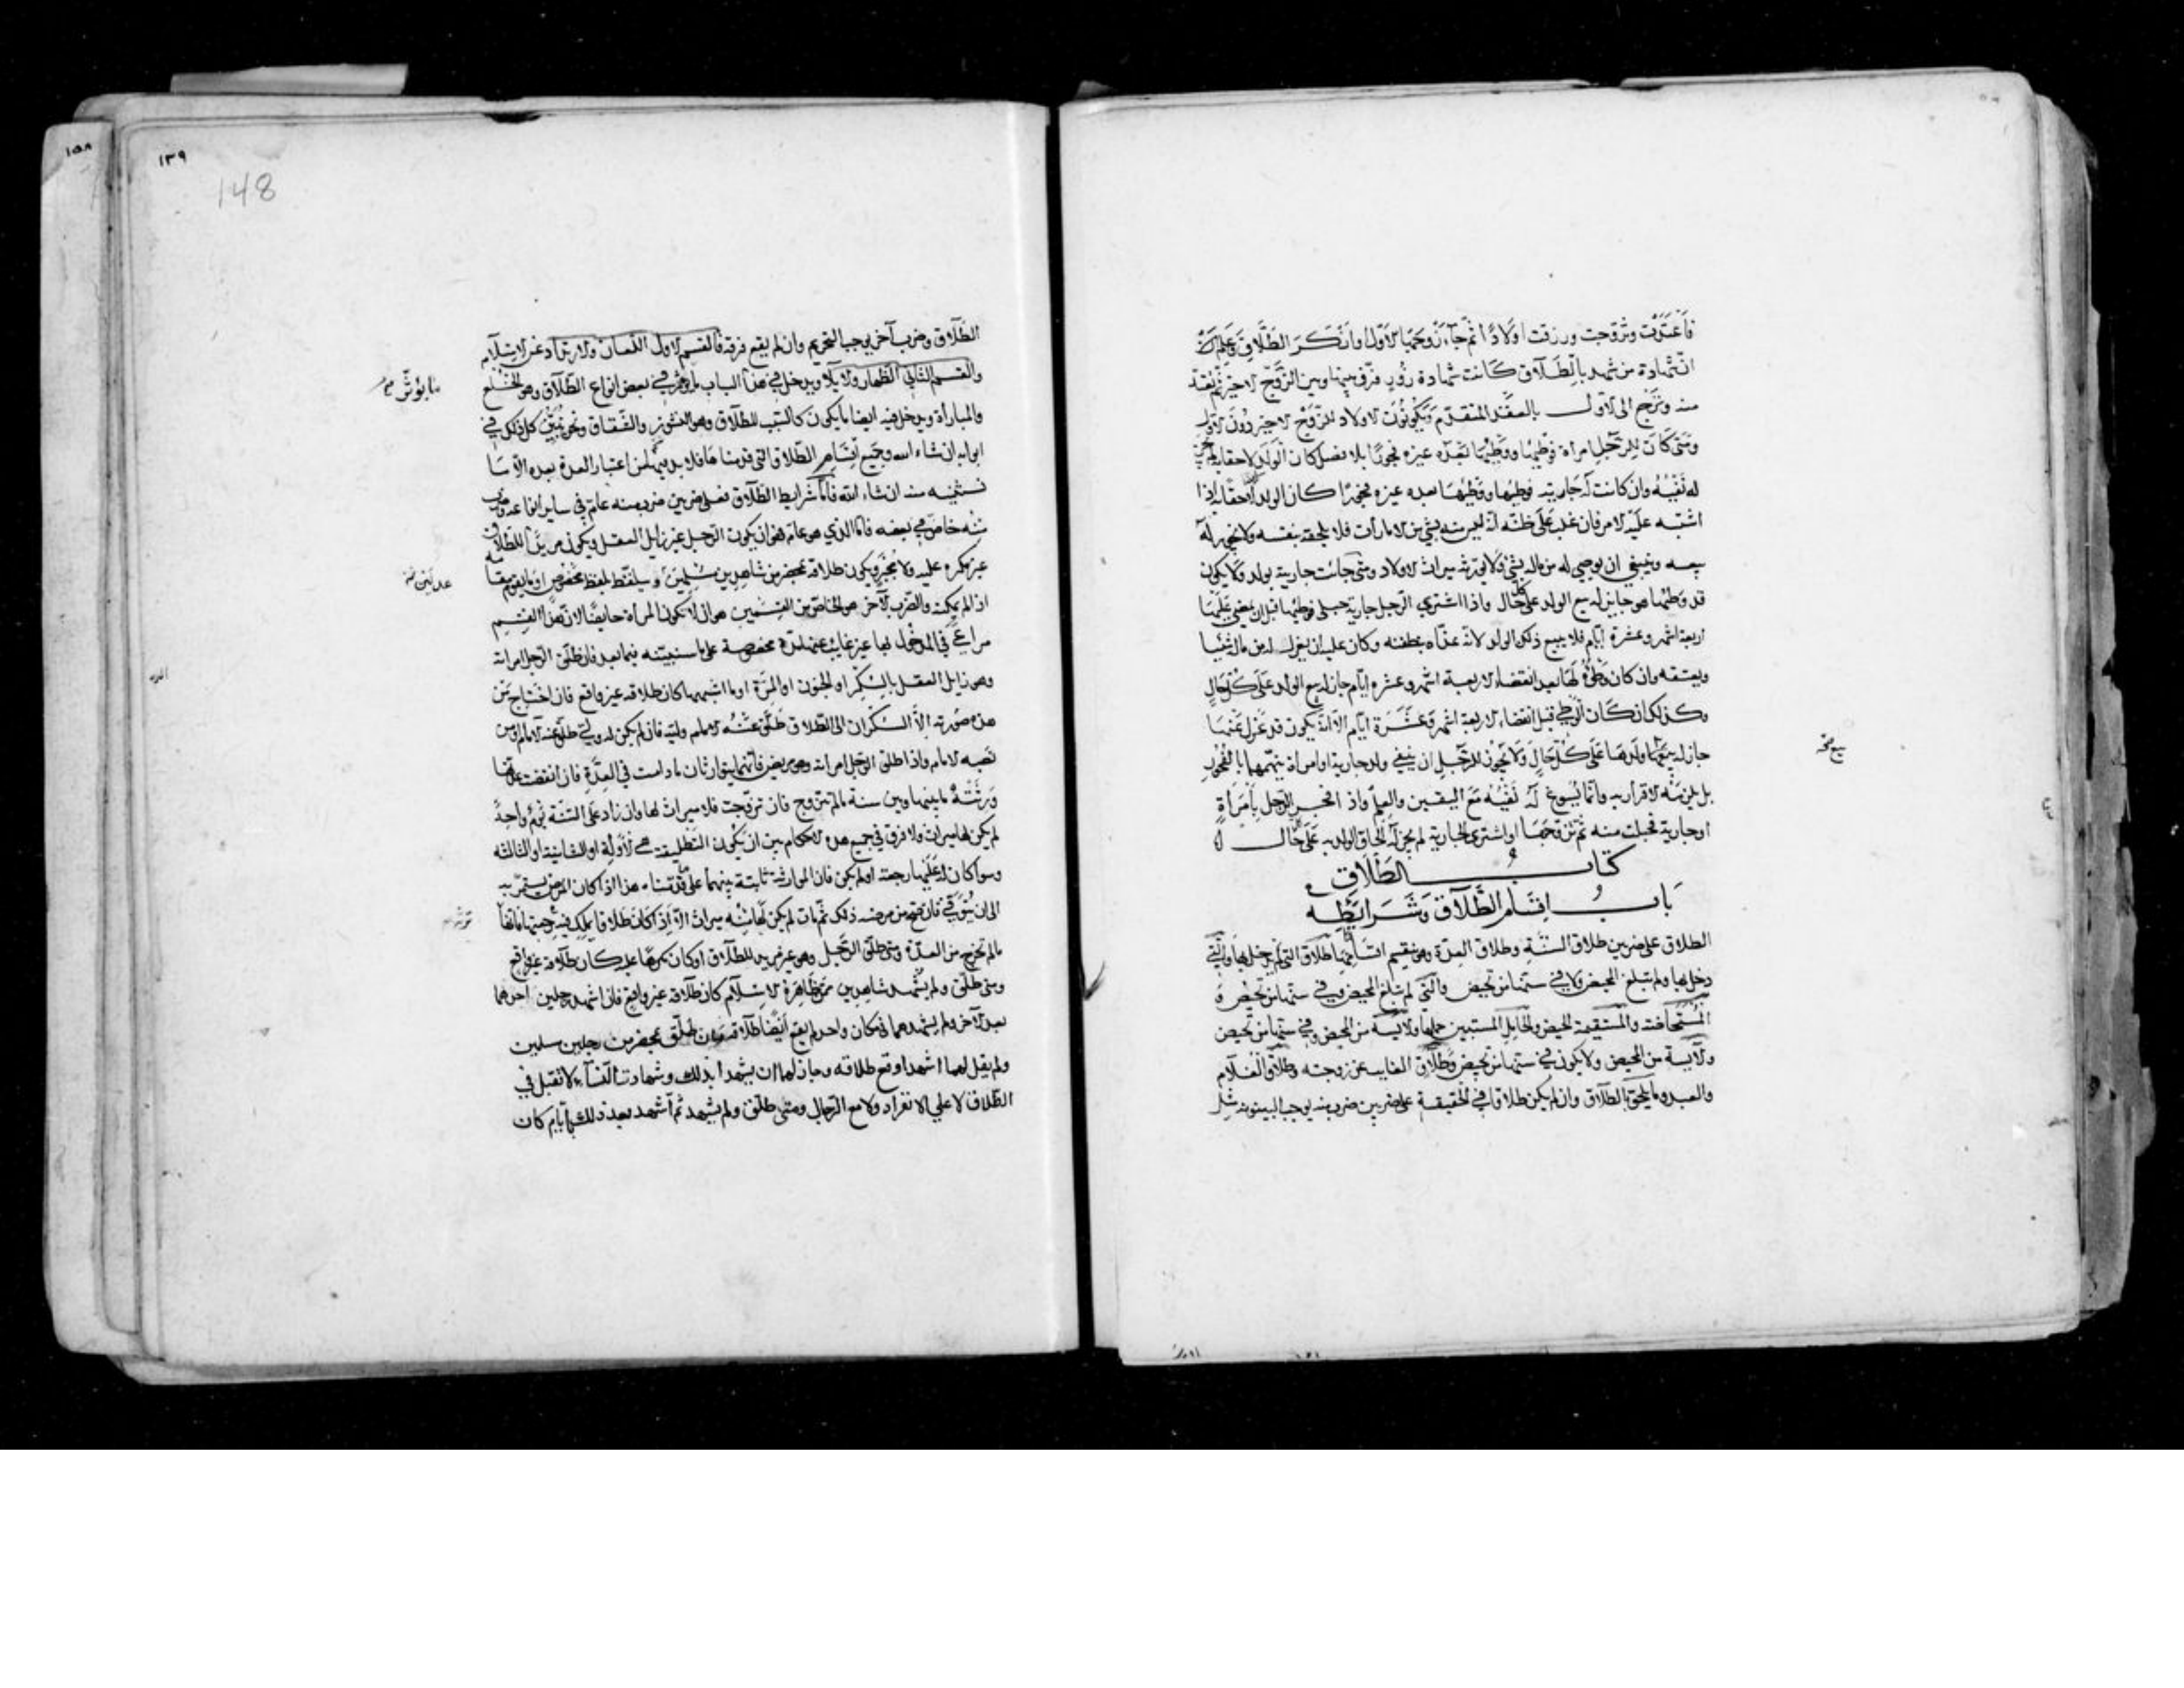 فاعتدت وتزوجت ورزقت اولادًا ثم جاء زوجها الاول وانكر الطلاق وعلم انّ
انّ شهادة من شهد بالطلاق كانت شهادة زور فرّق بينها وبين الزّوج الاخير ثم تعتد
منه وترجع الى الاول بالعقد المتقدم ويكونون الاولاد للزّوج الاخير دون الاول
ومتى كان للرّجل امراة فوطيها ووطيها بعده غيره فجورًا بلا فصل كان الولد لاحقا به
له نفيه وان كانت له جارية فوطيها ووطيها بعده غيره فجورًا كان الولد لاحقا به اذا
اشتبه عليه الامر فان غلب على ظنّه انه ليس منه بشي من الامارات فلا يلحقه بنفسه ولا يجوز له
بيعه وينبغي ان يوصي له من ماله بشي ولا يورثه ميراث الاولاد ومتى جائت جارية بولد ولا يكون
قد وطئها هو جاز له بيع الولد على كل حال واذا اشترى الرجل جارية حبلى فوطئها قبل ان يمضي عليها
اربعة اشهر وعشرة ايّام فلا يبيع ذلك الولد لانّه غذّاه بنطفته وكان عليه ان يعزل له من ماله شئيا
ويعتقه وان كان وطؤه لها بعد انقضاء الاربعة اشهر وعشره ايّام جاز له بيع الولد على كل حال
وكذلك ان كان الوطي قبل انقضاء الاربعة اشهر وعشرة ايام الا انه يكون قد عزل عنها
جاز له بيعها ولدها على كل حال ولا يجوز للرّجل ان ينفي ولد جارية او امراة يتّهمها بالفجور
بل يلزمه الاقرار به وانما يسوغ له نفيه مع اليقين والعلم واذ الفجر الرجل بامراة
او جارية فحبلت منه ثم تزوجها او اشترى الجارية لم يجز له الحاق الولد به على حال
بيع صح
كتاب الطلاق
باب اقسام الطّلاق وشرايطه
الطلاق على ضربين طلاق السنة وطلاق العدّة وهو ينقسم اقسامًا منها طلاق التي لم يدخل بها والّتي
دخل بها ولم تبلغ المحيض ولا في سنّها من تحيض والّتي لم تبلغ المحيض وفي سنّها من تحيض و
المستحاضة والمستقيمة الحيض والحامل المستبين حملها والآيسة من المحيض وفي سنّها من تحيض
والآيسة من المحيض ولا يكون في سنّها من تحيض وطلاق الغايب عن زوجته وطلاق الغلام
والعبد وما يلحق بالطلاق وان لم يكن طلاقا في الحقيقة على ضربين ضرب منه يوجب البينونة مثل
١٥٨
١٣٩
148
الطّلاق وضرب آخر يوجب التحريم وان لم يقع فرقة فالقسم الاول اللعان والارتداد عن الاسلام
والقسم الثاني الظهار والايلا ويدخل في هذا الباب ما يؤثر في بعض انواع الطّلاق وهو الخلع
والمباراة ويدخل فيه ايضا ما يكون كالسّبب للطلاق وهو النشوز والشّقاق ونحن نبيّن كل ذلك في
ابوابه ان شاء الله وجميع اقسام الطّلاق التي قدمنا ها فلا بد فيها من اعتبار العدة بعده الا ما
نستثنيه منه انشاء الله فامّا شرايط الطّلاق فعلى ضربين ضرب منه عام في ساير انواعه وضرب
منه خاصّ في بعضه فامّا الذي هو عام فهو ان يكون الرجل غير زايل العقل ويكون مريدًا للطلاق
غير مكره عليه ولا مجبر ويكون طلاقه بمحضر من شاهدين مسلمين ويتلفّظ بلفظ مخصوص او ما يقوم مقامه
اذا لم يمكنه والضّرب الآخر هو الخاصّ من القسمين هو ان لا تكون المراة حايضًا لان هذا القسم
مراعى في المدخول بها غير غايب عنها مدّة مخصوصة على ما سنبيّنه فيما بعد فان طلّق الرّجل امراته
وهو زايل العقل بالسكر او الجنون او المرّة او ما اشبهها كان طلاقه غير واقع فان احتاج من
هذه صورته الاّ السكران الى الطّلاق طلّق عنه وليّه فان لم يكن له وليّ طلّق عنه الامام او من
نصبه الامام واذا طلق الرجل امراته وهو مريض فانّهما يتوارثان ما دامت في العدّة فان انقضت عدّتها
ورثته ما بينها وبين سنة ما لم تتزوج فان تزوّجت فلا ميراث لها وان زاد على السّنة يوم واحد
لم يكن لها ميراث ولا فرق في جميع هذه الاحكام بين ان يكون التطليقة هي الاولة او الثانية او الثالثة
وسوا كان له عليها رجعة او لم يكن فان الموارثة ثابتة بينهما على ما قدّمناه هذا اذا كان المرض يستمرّ به
الى ان يتوفّي فان صحّ من مرضه ذلك ثم مات لم يكن لها منه ميراث الاّ اذا كان طلاقا يملك فيه رجعتها فانها
ما لم تخرج من العدّة ومتى طلّق الرّجل وهو غير مريد للطلاق او كان مكرهًا عليه كان طلاقه غير واقع
ومتى طلّق ولم يشهد شاهدين ممن ظاهره الاسلام كان طلاقه غير واقع فان اشهد رجلين احدهما
بعد الآخر ولم يشهدهما في مكان واحد لم يقع ايضًا طلاقه ومن طلّق بمحضر من رجلين مسلمين
ولم يقل لهما اشهدا وقع طلاقه وجاز لهما ان يشهدا بذلك وشهادة النسآء لا تقبل في
الطّلاق لا على الانفراد ولا مع الرجال ومتى طلّق ولم يشهد ثم اشهد بعد ذلك بايّام كان
ما يؤثّر
عدلين
ترثه